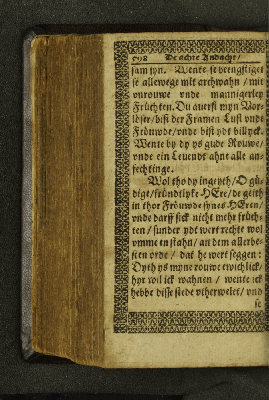 598 De achte Andacht /
sam syn. Wente se vengstiget
se allewege mit archwahn / mit
vnrouwe vnde mannigerley
Früchten. Du auerst myn Vor-
löser / bist der Framen Lust vnde
Fröuwde / vnde bist ydt billyck.
Wente by dy ys gude Rouwe /
vnde ein Leuendt ahne alle an-
fechtinge.
Wol tho dy ingeyth / O gü-
dige / fründtlyke HEre / de geith
in thor Fröuwde synes HEren /
vnde darff sick nicht mehr früch-
ten / sunder ydt wert rechte wol
vmme en stahn / an dem allerbe-
sten orde / dat he wert seggen :
Dyth ys myne rouwe ewichlick /
hyr wil ick wahnen / wente ick
hebbe disse stede vtherwelet / vnd
se